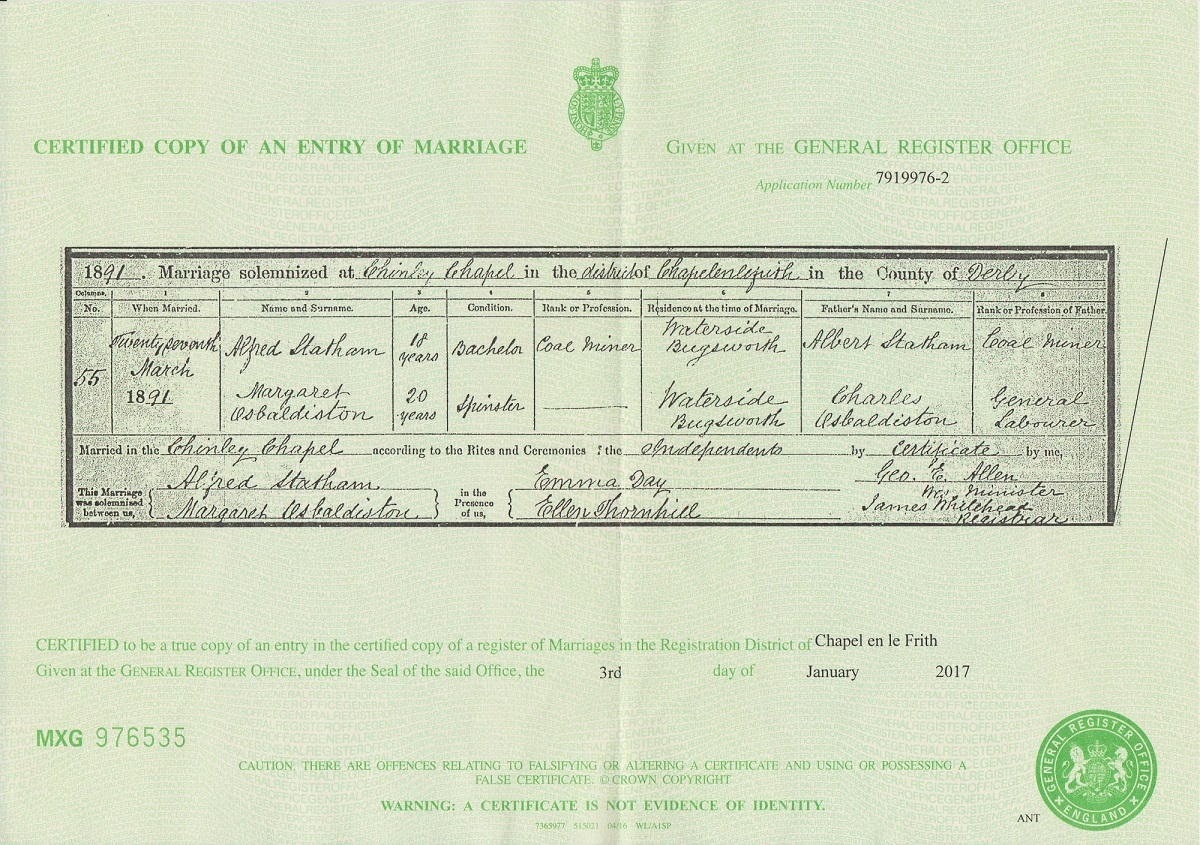 CERTIFIED COPY OF AN ENTRY OF MARRIAGE
GIVEN AT THE GENERAL REGISTER OFFICE
Application Number 7919976-2
1891. Marriage solemnized at Chinley Chapel in the district of Chapelenlefrith in the County of Derby
Columns. 1 2 3 4 5 6 7 8
No. When Married. Name and Surname. Age. Condition. Rank or Profession. Residence at the time of Marriage. Father's Name and Surname. Rank or Profession of Father.
55
Twenty seventh March 1891
Alfred Statham 18 years Bachelor Coal Miner Waterside Bugsworth Albert Statham Coal Miner
Margaret Osbaldiston 20 years Spinster Waterside Bugsworth Charles Osbaldiston General Labourer
Married in the Chinley Chapel according to the Rites and Ceremonies of the Independents by Certificate by me,
This Marriage was solemnized between us,
Alfred Statham
Margaret Osbaldiston
in the Presence of us,
Emma Day
Ellen Thornhill
Geo. E. Allen
Minister
James Whitehead
Registrar
CERTIFIED to be a true copy of an entry in the certified copy of a register of Marriages in the Registration District of Chapel en le Frith
Given at the GENERAL REGISTER OFFICE, under the Seal of the said Office, the 3rd day of January 2017
MXG 976535
CAUTION: THERE ARE OFFENCES RELATING TO FALSIFYING OR ALTERING A CERTIFICATE AND USING OR POSSESSING A
FALSE CERTIFICATE. © CROWN COPYRIGHT
WARNING: A CERTIFICATE IS NOT EVIDENCE OF IDENTITY.
7365977 515021 04/16 WL/A1SP
ANT
GENERAL REGISTER OFFICE
ENGLAND